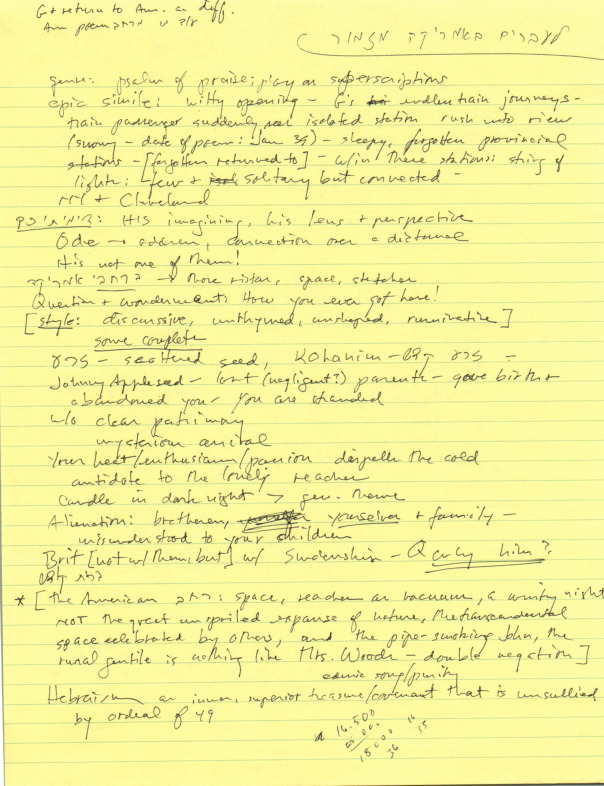 G + return to Am. a diff.
Am poem
לעברים באמריקה מזמור
genre: psalm of praise; play on superscriptions
epic simile: witty opening - G's endless train journeys -
train passenger suddenly isolated station rush into view
(snowy - date of poem: Jan 39) - sleepy, forgotten provincial
stations - [forgotten returned to] - w/in these stations: string of
lights: few + solitary but connected -
NY + Cleveland
HIS imagining, his lens + perspective
Ode → address, connection over a distance
He's not one of them!
מרחבי אמריקה → more vistas, space, stretches
Question + wonderment: How you ever got here!
[style: discursive, unrhymed, unshaped, ruminative]
some complete
זרע - scattered seed, Kohanim - זרע קדש -
Johnny Appleseed - lost (negligent?) parents - gave birth +
abandoned you - you are stranded
w/o clear patrimony
mysterious arrival
Your heat/enthusiasm/passion dispells the cold
antidote to the lonely reaches
Candle in dark night > gen. theme
Alienation: bretheren, yourselves + family -
misunderstood to your children
Brit [not w/ them, but] w/ - Q him?
* [the American מרחב: space, reaches as vacuum, a wintry night
NOT the great unspoiled expanse of nature, the transcendental
space celebrated by others, and the pipe-smoking John, the
rural gentile is nothing like Mrs. Woods - double negation]
song/purity
Hebraism an inner, superior treasure/covenant that is unsullied
by ordeal of 49
16.500
18000
36